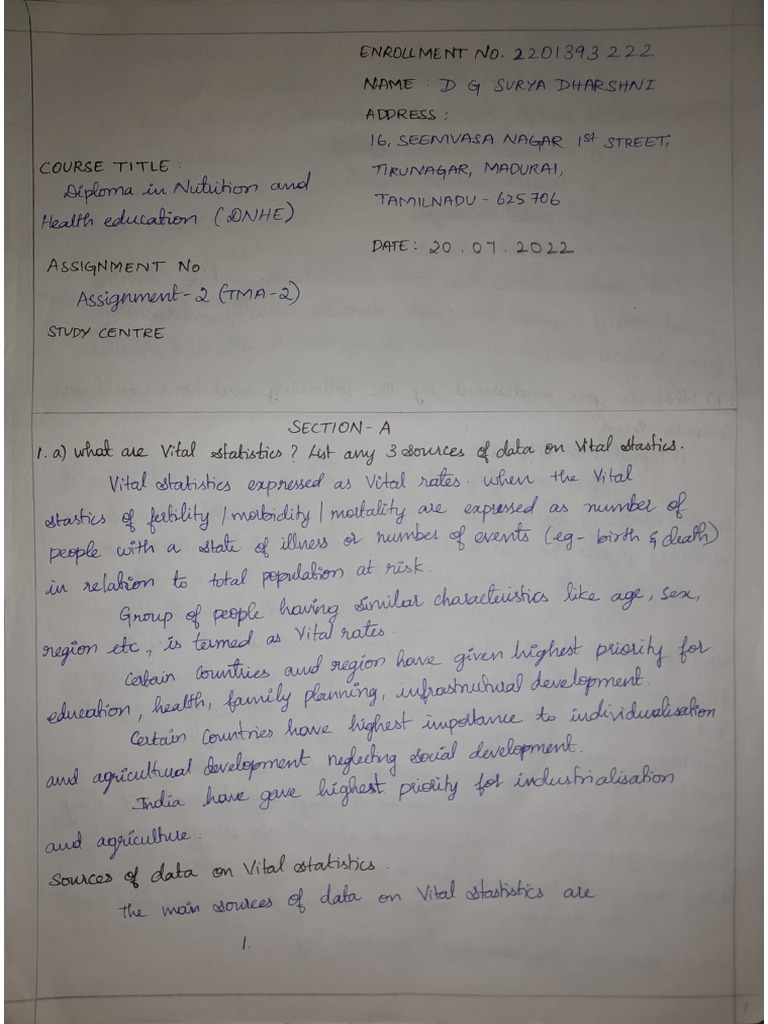 ENROLLMENT NO. 2201393222
NAME : D G SURYA DHARSHNI
ADDRESS :
16, SEENIVASA NAGAR 1st STREET,
TIRUNAGAR, MADURAI,
TAMILNADU - 625706
DATE : 20.07.2022
COURSE TITLE :
Diploma in Nutrition and
Health education (DNHE)
ASSIGNMENT No.
Assignment - 2 (TMA-2)
STUDY CENTRE
SECTION - A
1. a) what are Vital statistics ? List any 3 sources of data on Vital stastics.
Vital statistics expressed as Vital rates. when the Vital
stastics of fertility / morbidity / mortality are expressed as number of
people with a state of illness or number of events (eg - birth & death)
in relation to total population at risk.
Group of people having similar characteristics like age, sex,
region etc., is termed as Vital rates.
Certain countries and region have given highest priority for
education, health, family planning, infrastrutural development.
Certain Countries have highest importance to individualisation
and agricultural development neglecting social development.
India have gave highest priority for industrialisation
and agriculture.
Sources of data on Vital statistics.
The main sources of data on Vital stastistics are
1.